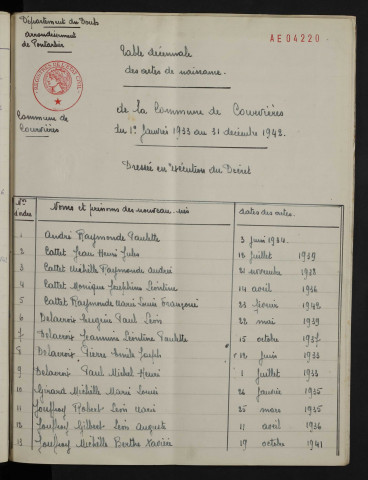 Département du Doubs
arrondissement
de Pontarlier
AE04220
Table décennale
des actes de naissance.
Commune de
Courvières
de la Commune de Courvières
du 1er Janvier 1933 au 31 décembre 1942.
Dressée en exécution du Décret
Nos d'ordre
Noms et prénoms des nouveau-nés
dates des actes.
1 André Raymonde Paulette 3 juin 1934
2 Cattet Jean Henri Jules 18 juillet 1939
3 Cattet Michelle Raymonde Andrée 21 novembre 1938
4 Cattet Monique Joséphine Léontine 14 avril 1936
5 Cattet Raymonde Marie Françoise 23 février 1942
6 Delacroix Paul Léon 22 mai 1939
7 Delacroix Jeannine Léontine Paulette 15 octobre 1937
8 Delacroix Pierre Joseph 12 juin 1933
9 Delacroix Paul Michel Henri 1 juillet 1933
10 Girard Michelle Marie Louise 26 janvier 1935
11 Jouffroy Robert Léon 25 mars 1935
12 Jouffroy Gilbert Léon Auguste 11 avril 1936
13 Jouffroy Michelle Berthe 19 octobre 1941